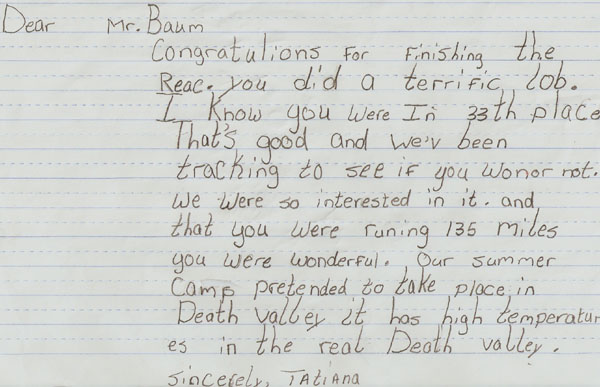 Dear Mr. Baum
Congratulions For Finishing the
Reac. you did a terrific Job.
I Know you Were In 33th place
That's good and we'v been
tracking to see if you wonor not.
we were so interested in it. and
that you were runing 135 miles
you were wonderful. Our summer
Camp pretended to take place in
Death valley it has high temperatur
es in the real Death valley.
sincerely, TAtiana